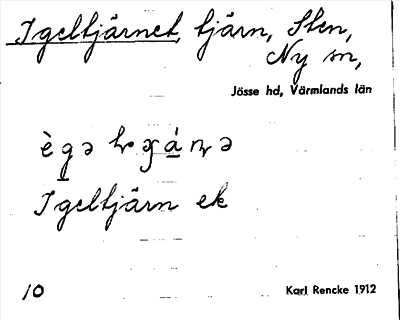 Igeltjärnet, tjärn, Sten,
Ny sn,
Jösse hd, Värmlands län
Igeltjärn ek
10
Karl Rencke 1912